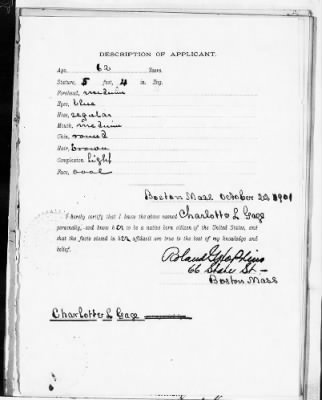 DESCRIPTION OF APPLICANT.
Age, 62 Years.
Stature, 5 feet, 4 in. Eng.
Forehead, medium
Eyes, blue
Nose, regular
Mouth, medium
Chin, round
Hair, brown
Complexion, light
Face, oval
Boston Mass October 22 1901
I hereby certify that I know the above named Charlotte L Gage
personally, and know her to be a native born citizen of the United States, and
that the facts stated in her affidavit are true to the best of my knowledge and
belief.
Roland G Hopkins
66 State St -
Boston Mass
Charlotte L Gage